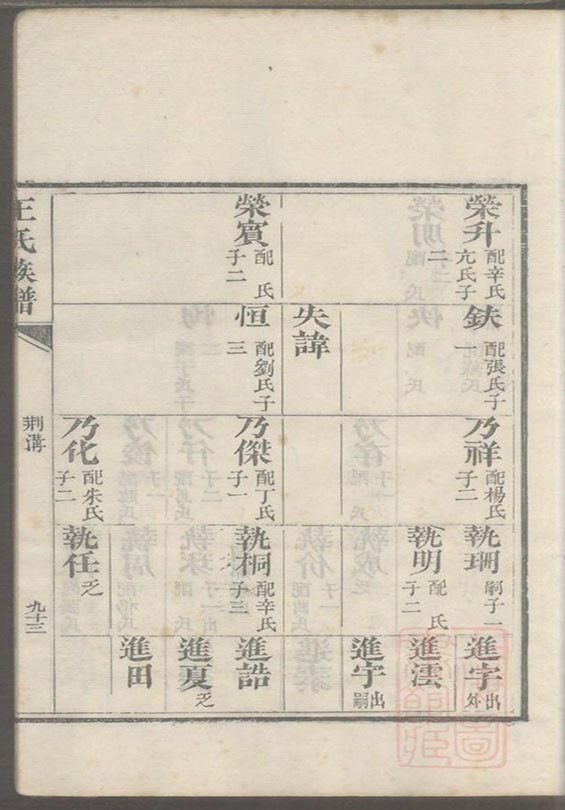 榮升 配辛氏 亢氏子二
榮賓 配 氏 子二
鈇 配張氏子一
失諱
恒 配劉氏子三
乃祥 配楊氏 子二
乃傑 配丁氏 子一
乃化 配朱氏 子二
執珊 嗣子一
執明 配 氏 子二
執桐 配辛氏 子三
執任 乏
進字 出外
進澐
進宇 出嗣
進誥
進夏 乏
進田
王氏族譜
荆溝
九十三